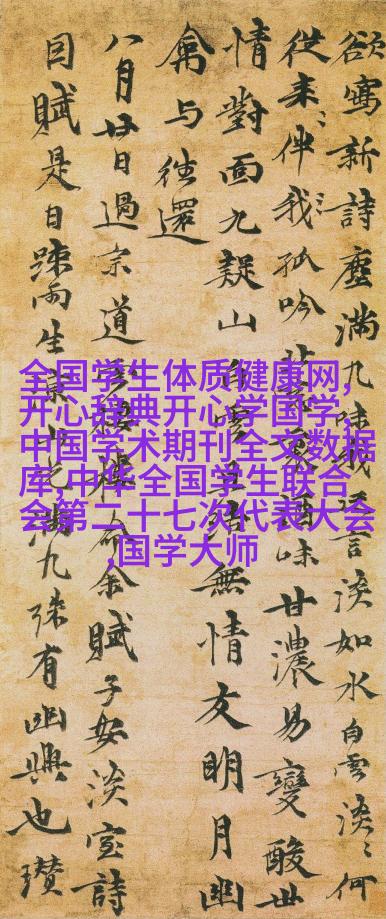 欲寫新詩塵滿九味我言淡如水白雲淡淡何
從來〻伴我〻孤吟味甘濃易變酸世
情對面九疑山白雲無情友明月幽
禽与往還
八月廿日過宗道命余賦子安淡室詩
目賦是日疎雨生九殊有幽興也瓚
全国学生体质健康网,
开心辞典开心学国学,
中国学术期刊全文数据
库,中华全国学生联合
会第二十七次代表大会
,国学大师